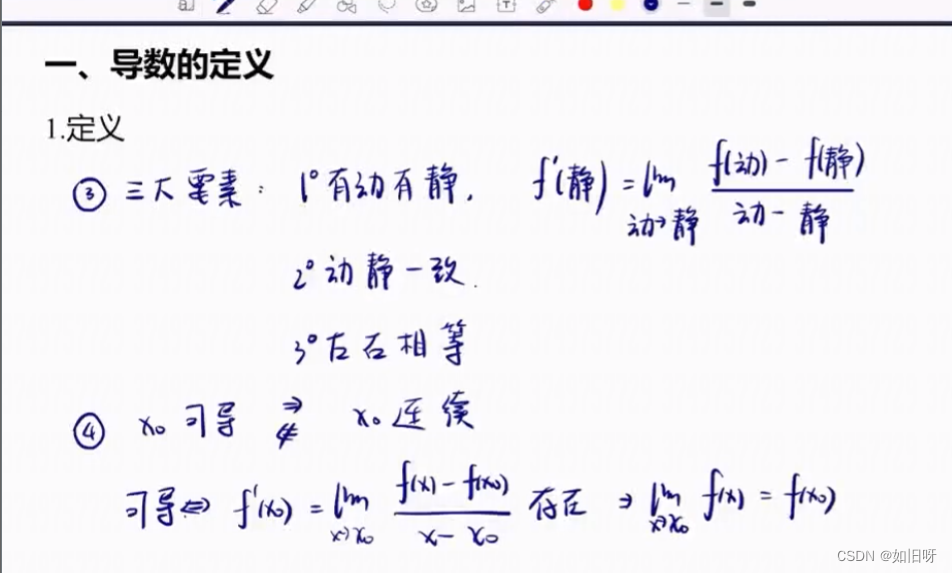 一、导数的定义
1.定义
③ 三大要素: 1° 有动有静. f'(静) = lim 动→静 f(动) - f(静) / 动 - 静
2° 动静一致.
3° 左右相等
④ x₀ 可导 ⇒ ⇍ x₀ 连续
可导 ⇔ f'(x₀) = lim x→x₀ f(x) - f(x₀) / x - x₀ 存在 ⇒ lim x→x₀ f(x) = f(x₀)
CSDN @如旧呀